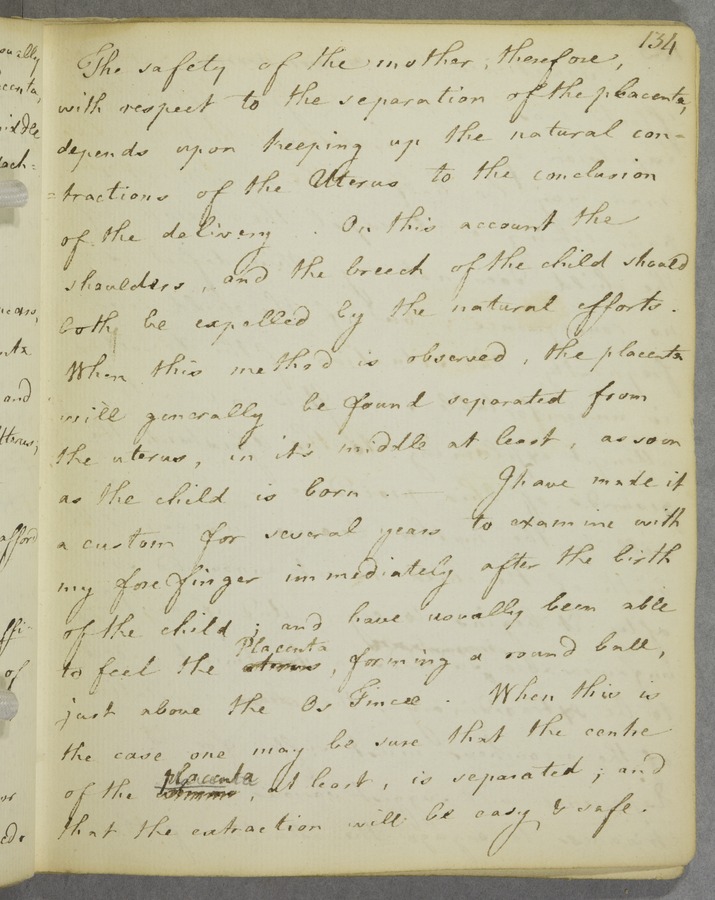 134
The safety of the mother, therefore,
with respect to the separation of the placenta,
depends upon keeping up the natural con-
=tractions of the Uterus to the conclusion
of the delivery. On this account the
shoulders, and the breech of the child should
both be expelled by the natural efforts.
When this method is observed, the placenta
will generally be found separated from
the uterus, in it's middle at least, as soon
as the child is born. — I have made it
a custom for several years to examine with
my fore finger immediately after the birth
of the child; and have usually been able
to feel the Placenta uterus, forming a round ball,
just above the Os Tincæ. When this is
the case one may be sure that the centre
of the placenta, at least, is separated; and
that the extraction will be easy & safe.